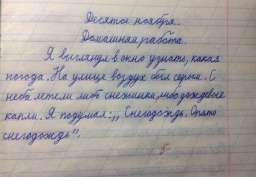 Десятое ноября.
Домашняя работа.
Я выглянул в окно узнать, какая
погода. На улице воздух был серым. С
неба летели либо снежинки, либо дождевые
капли. Я подумал: „Снегодождь. Стало
снегодождь".